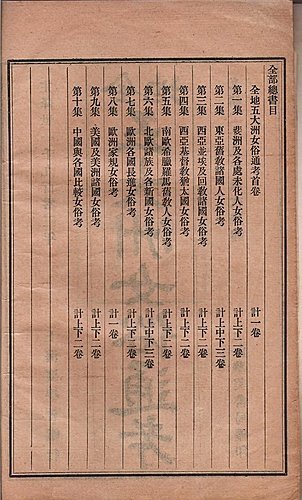 全部總書目
全地五大洲女俗通考首卷 計一卷
第一集 斐洲及各處未化人女俗考 計上下二卷
第二集 東亞舊教諸國人女俗考 計上中下三卷
第三集 西亞並埃及回教諸國女俗考 計上下二卷
第四集 西亞基督教猶太國女俗考 計上下二卷
第五集 南歐希臘羅馬舊教人女俗考 計上下二卷
第六集 北歐諸族及各新國女俗考 計上中下三卷
第七集 歐洲各國長進女俗考 計上下二卷
第八集 歐洲家規女俗考 計一卷
第九集 美國及美洲諸國女俗考 計上下二卷
第十集 中國與各國比較女俗考 計上下二卷